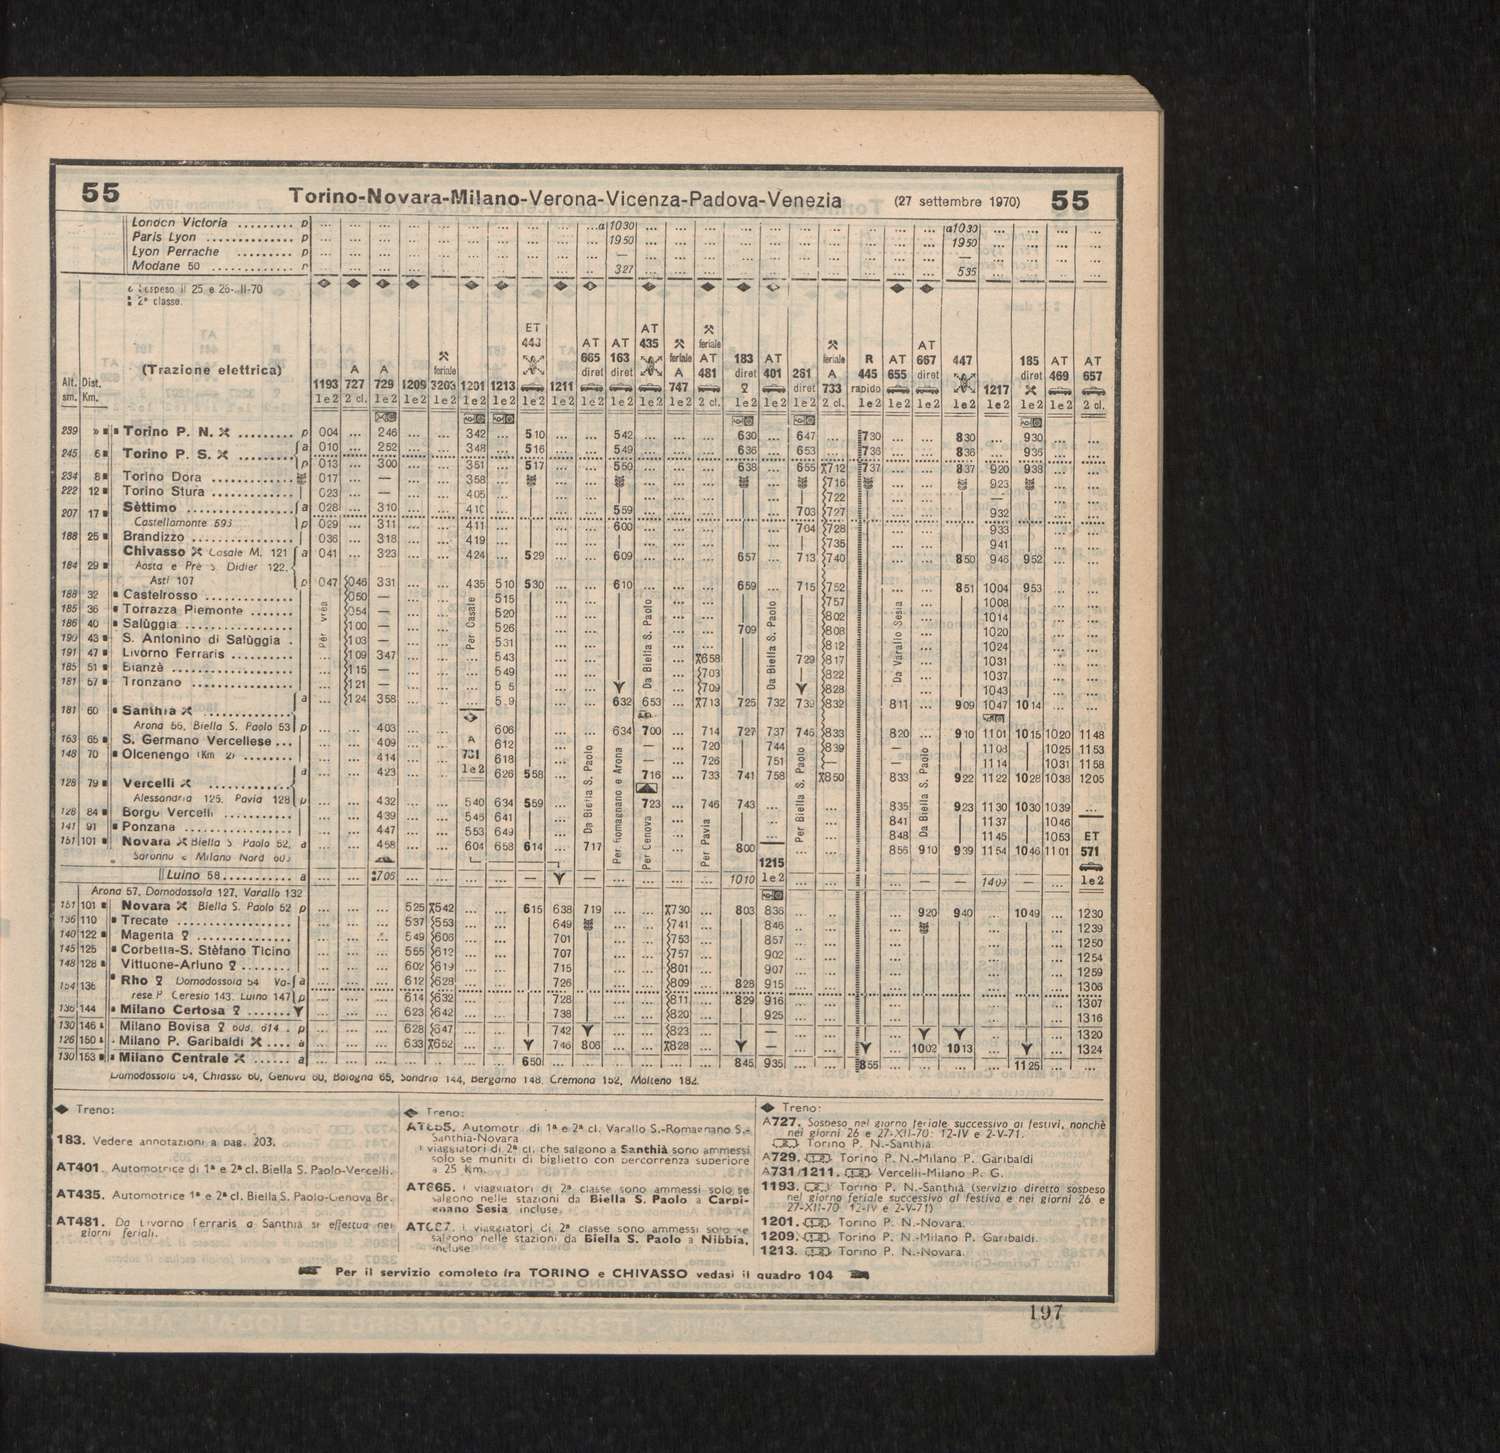 55 Torino-Novara-Milano-Verona-Vicenza-Padova-Venezia (27 settembre 1970) 55
London Victoria ......... p ... ... ... ... ... ... ... ... ... ...a 1030 ... ... ... ... ... ... ... ... ... ... a1030 ... ... ... ...
Paris Lyon ............. p ... 1950 ... 1950 ...
Lyon Perrache ......... p ... — ... — ...
Modane 50 ............ ... 327 ... 535 ...
2ª classe.
(Trazione elettrica)
Alt. sm. Dist. Km.
1193 1e2
A 727 2 cl.
A 729 1e2
1209 1e2
feriale 3203 1e2
1201 1e2
1213 1e2
ET 443 1e2
1211 1e2
AT 665 diret 1e2
AT 163 diret 1e2
AT 435 1e2
feriale A 747 1e2
feriale AT 481 2 cl.
183 diret 1e2
AT 401 1e2
281 diret 1e2
feriale A 733 2 cl.
R 445 rapido 1e2
AT 655 1e2
AT 667 diret 1e2
447 1e2
1217 1e2
185 diret 1e2
AT 469 1e2
AT 657 2 cl.
239 » Torino P. N. ......... p 004 ... 246 ... ... 342 ... 510 ... ... 542 ... ... ... 630 ... 647 730 ... ... 830 ... 930 ... ...
245 6 Torino P. S. ......... a 010 ... 252 ... ... 348 ... 516 ... ... 549 ... ... ... 636 ... 653 736 ... ... 836 ... 936 ... ...
p 013 ... 300 ... ... 351 ... 517 ... ... 550 ... ... ... 638 ... 655 712 737 ... ... 837 920 938 ... ...
234 8 Torino Dora ............ 017 ... — ... ... 358 ... 716 ... 923
222 12 Torino Stura ............ 023 ... — ... ... 405 ... 722 ... —
207 17 Sèttimo ................ a 028 ... 310 ... ... 410 ... 559 ... 703 727 ... 932
Castellamonte 593 p 029 ... 311 ... ... 411 ... 600 ... 704 728 ... 933
188 25 Brandizzo ............... 036 ... 318 ... ... 419 ... 735 ... 941
Chivasso Casale M. 121 a 041 ... 323 ... ... 424 ... 529 ... ... 609 ... ... ... 657 ... 713 740 ... ... 850 946 952 ... ...
184 29 Aosta e Prè S. Didier 122.
Asti 107 p 047 046 331 ... ... 435 510 530 ... ... 610 ... ... ... 659 ... 715 752 ... ... 851 1004 953 ... ...
188 32 Castelrosso ............. 050 — ... 515 ... 757 ... 1008
185 36 Torrazza Piemonte ....... 054 — ... 520 ... 802 ... 1014
186 40 Salùggia ................ 100 — ... 526 ... 709 ... 808 ... 1020
190 43 S. Antonino di Salùggia . 103 — ... 531 ... 812 ... 1024
191 47 Livorno Ferraris .......... 109 347 ... 543 ... 658 ... 729 817 ... 1031
185 51 Bianzè .................. 115 — ... 549 ... 703 ... 822 ... 1037
181 57 Tronzano ............... 121 — ... 709 ... 828 ... 1043
181 60 Santhià ............. a ... 124 358 ... 632 653 ... 713 725 732 739 832 ... 811 ... 909 1047 1014 ... ...
Arona 56, Biella S. Paolo 53 p ... 403 ... 606 ... 634 700 ... 714 727 737 746 833 ... 820 ... 910 1101 1015 1020 1148
163 65 S. Germano Vercellese ... ... 409 ... 612 ... — ... 720 ... 744 839 ... — ... 1108 1025 1153
148 70 Olcenengo ........ ... 414 ... 618 ... — ... 726 ... 751 — ... — ... 1114 1031 1158
128 79 Vercelli ............ a ... 423 ... 626 558 ... 716 ... 733 741 758 850 ... 833 ... 922 1122 1028 1038 1205
Alessandria 125, Pavia 128 p ... 432 ... 540 634 559 ... 723 ... 746 743 ... 835 ... 923 1130 1030 1039 ...
128 84 Borgo Vercelli .......... ... 439 ... 545 641 ... 841 ... 1137 1046
141 91 Ponzana ................ ... 447 ... 553 649 ... 848 ... 1145 1053
151 101 Novara Biella S. Paolo 52, a ... 458 ... 604 658 614 ... 717 ... 800 ... 856 910 939 1154 1046 1101
Saronno e Milano Nord 605
A 731 1e2
Per Ivrea
Per Casale
Da Biella S. Paolo
Per Romagnano e Arona
Da Biella S. Paolo
Per Genova
Per Pavia
Da Biella S. Paolo
Per Biella S. Paolo
Da Varallo Sesia
Da Biella S. Paolo
1215 1e2
ET 571 1e2
Luino 58........... a ... 705 ... — ... 1010 ... — — 1409 — ...
Arona 57, Domodossola 127, Varallo 132
151 101 Novara Biella S. Paolo 52 p ... ... ... 525 542 ... ... 615 638 719 ... ... 730 ... 803 836 ... ... 920 940 ... 1049 ... 1230
136 110 Trecate .................. 537 553 ... 649 ... 741 ... 846 ... 1239
140 122 Magenta ................ 549 606 ... 701 ... 753 ... 857 ... 1250
145 125 Corbetta-S. Stèfano Ticino 555 612 ... 707 ... 757 ... 902 ... 1254
148 128 Vittuone-Arluno ........ 602 619 ... 715 ... 801 ... 907 ... 1259
154 136 Rho Domodossola 54 Va- a 612 628 ... 726 ... 809 ... 828 915 ... 1306
rese P. Ceresio 143, Luino 147 p 614 632 ... 728 ... 811 ... 829 916 ... 1307
136 144 Milano Certosa ....... 623 642 ... 738 ... 820 ... 925 ... 1316
130 146 Milano Bovisa 606, 614 . p 628 647 ... 742 ... 823 ... — ... 1320
126 150 Milano P. Garibaldi .... a 633 652 ... 746 806 ... 828 ... — ... 1002 1013 ... 1324
130 153 Milano Centrale ...... a ... 650 ... 845 935 ... 855 ... 1125 ...
Domodossola 54, Chiasso 60, Genova 60, Bologna 65, Sondrio 144, Bergamo 148, Cremona 152, Molteno 182.
Treno:
183. Vedere annotazioni a pag. 203.
AT401. Automotrice di 1ª e 2ª cl. Biella S. Paolo-Vercelli.
AT435. Automotrice 1ª e 2ª cl. Biella S. Paolo-Genova Br.
AT481. Da Livorno Ferraris a Santhià si effettua nei
giorni feriali.
Treno:
AT655. Automotr. di 1ª e 2ª cl. Varallo S.-Romagnano S.-
Santhià-Novara
I viaggiatori di 2ª cl. che salgono a Santhià sono ammessi
solo se muniti di biglietto con percorrenza superiore
a 25 Km.
AT665. I viaggiatori di 2ª classe sono ammessi solo se
salgono nelle stazioni da Biella S. Paolo a Carpi-
gnano Sesia incluse.
AT667. I viaggiatori di 2ª classe sono ammessi solo se
salgono nelle stazioni da Biella S. Paolo a Nibbia,
incluse.
Treno:
A727. Sospeso nel giorno feriale successivo ai festivi, nonchè
nei giorni 26 e 27-XII-70; 12-IV e 2-V-71.
Torino P. N.-Santhià.
A729. Torino P. N.-Milano P. Garibaldi
A731/1211. Vercelli-Milano P. G.
1193. Torino P. N.-Santhià (servizio diretto sospeso
nel giorno feriale successivo al festivo e nei giorni 26 e
27-XII-70 12-IV e 2-V-71)
1201. Torino P. N.-Novara.
1209. Torino P. N.-Milano P. Garibaldi.
1213. Torino P. N.-Novara.
Per il servizio completo fra TORINO e CHIVASSO vedasi il quadro 104
197